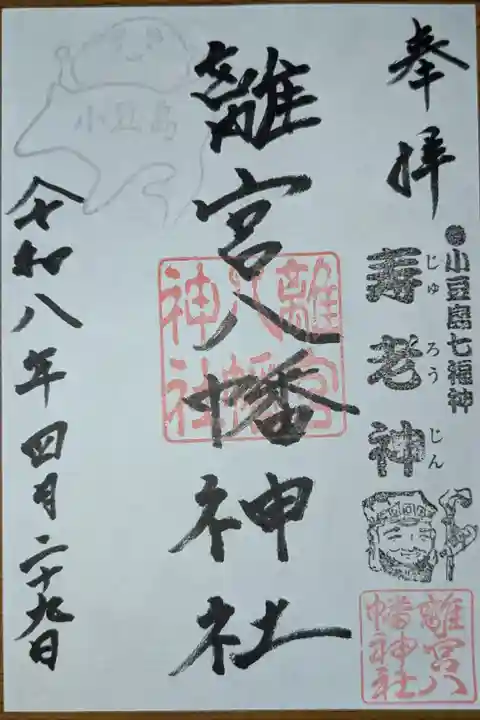 奉拝
小豆島七福神
寿老神
じゅ ろう じん
離宮八幡神社
離宮八幡神社
離宮八幡神社
小豆島
令和八年四月二十九日